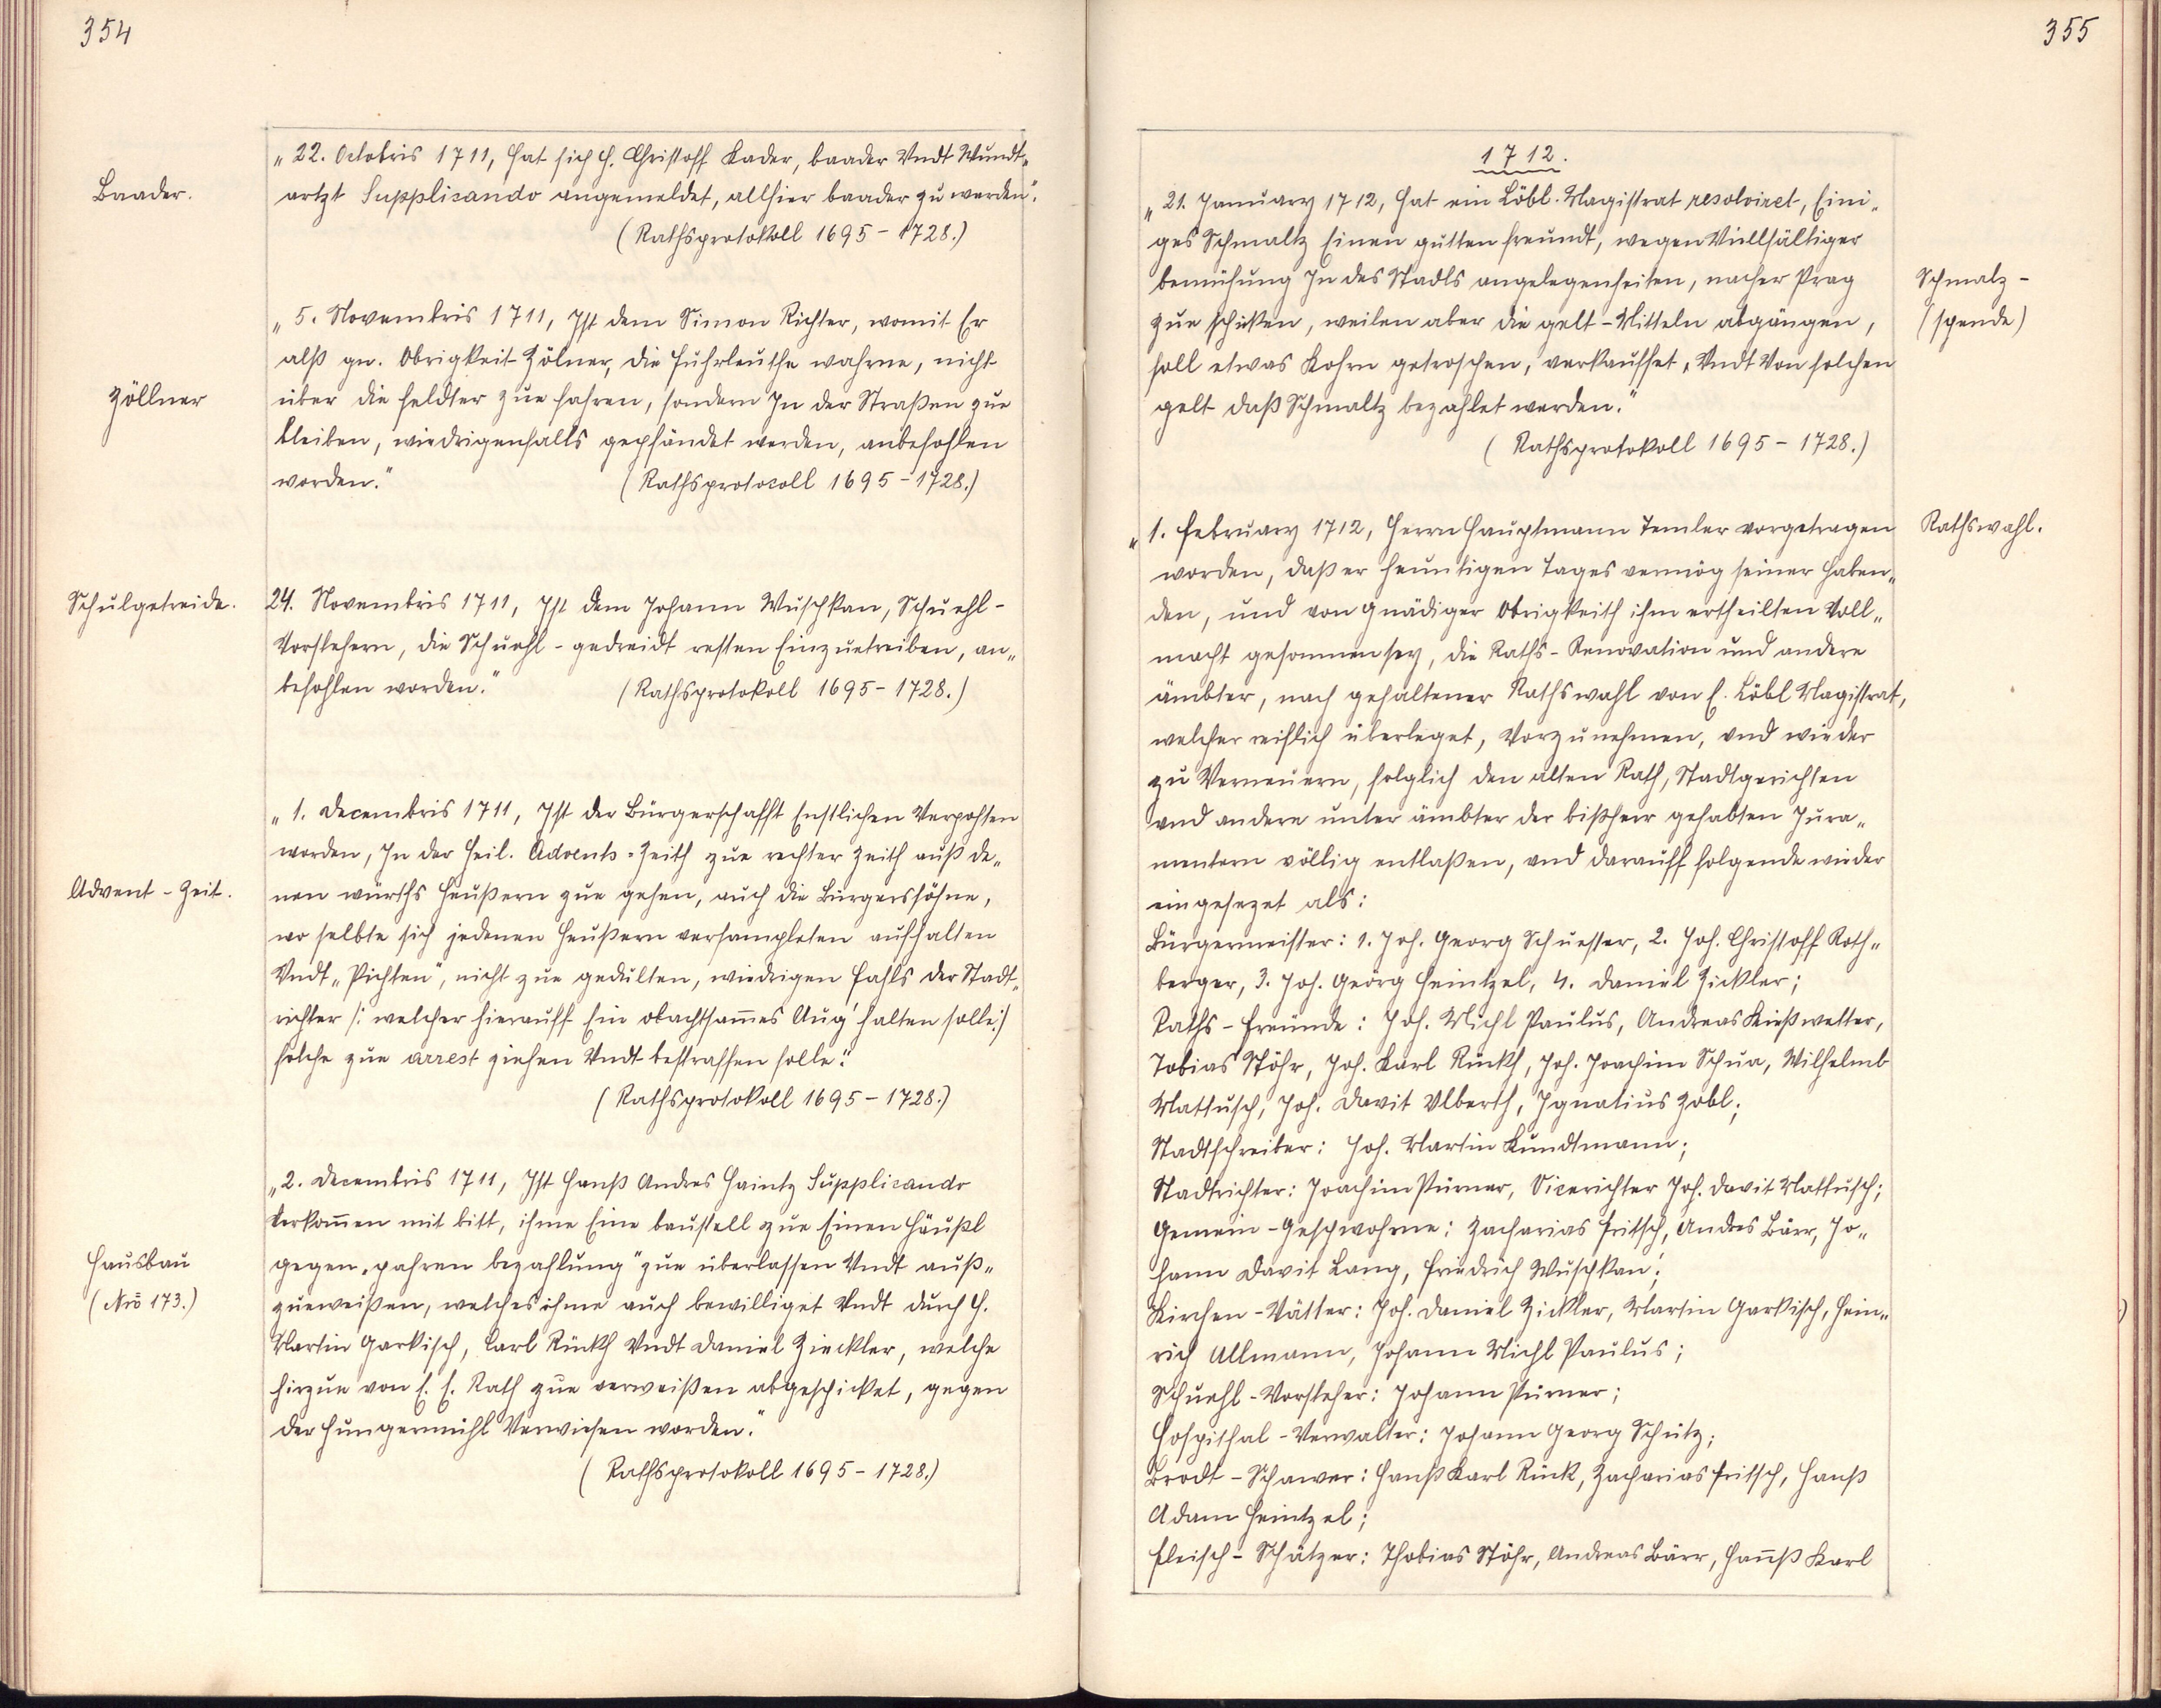 354
Baader.
„22. Octobris 1711, hat sich H. Christoff Bader, baader Vndt Wundt„
artzt Supplicando angemeldet, allhier baader zu werden“.
(Rathsprotokoll 1695 - 1728.)
Zöllner
„5. Novembris 1711, Ist dem Simon Richter, womit Er
alß gn. Obrigkeit-Zölner, die fuhrleuthe wahrne, nicht
über die feldter zue fahren, sondern In der Straßen zue
bleiben, wiedrigenfalls gepfändet werden, anbefohlen
worden.“ (Rathsprotocoll 1695 - 1728.)
Schulgetreide.
24. Novembris 1711, Ist dem Johann Wuschkan, Schuehl-
Vorstehern, die Schuehl-gedreidt resten Einzuetreiben, an„
befohlen worden.“ (Rathsprotokoll 1695 - 1728.)
Advent-Zeit.
„1. Decembris 1711, Ist der Bürgerschafft Enstlichen Verpohten
worden, In der Heil. Advents-Zeith zue rechter Zeith auß de„
nen würths heußern zue gehen, auch die Bürgerssöhne,
wo selbte sich jedenen heußern versampleten auffhalten
Vndt „Pichten“, nicht zue gedulten, wiedrigen fahls der Stadt„
richter /: welcher hierauff Ein obachtsam̅es Aug' halten solle:/
solche zue arrest ziehen Vndt bestraffen solle“.
(Rathsprotokoll 1695 - 1728.)
Hausbau
(Nro 173.)
„2. Decembris 1711, Ist Hanß Andres Haintz Supplicando
Vorkom̅en mit bitt, ihme Eine baustell zue Einen Häußl
gegen „pahren bezahlung“ zue überlassen Vndt auß„
zueweißen, welches ihme auch bewilliget Vndt durch H.
Martin Garkisch, Carl Rückh Vndt Daniel Zieckler, welche
hirzue von E. E. Rath zue verweißen abgeschicket, gegen
der Hungermühl Verwiesen worden.“
(Rathsprotokoll 1695 - 1728.)
355
1712.
Schmalz-
(spende)
„21. January 1712, hat ein Löbl. Magistrat resolviret, Eini„
ges Schmaltz Einen gutten freundt, wegen Vielfältiger
bemühung In des Stadls angelegenheiten, nacher Prag
zue schicken, weilen aber die gelt-Mitteln abgängen,
soll etwas Kohrn getroschen, verkauffet, Vndt Von solchen
gelt daß Schmaltz bezahlet werden.“
(Rathsprotokoll 1695 - 1728.)
Rathswahl.
„1. february 1712, Herrn Hauptmann Temler vorgetragen
worden, daß er heuntigen Tages vermög seiner Haben„
den, und von Gnädiger Obrigkeith ihm ertheilten Voll„
macht gesonnen sey, die Raths-Renovation und andere
ämbter, nach gehaltener Rathswahl von E. Löbl Magistrat,
welcher reiflich überleget, Vorzunehmen, vnd wieder
zu Verneuern, folglich den alten Rath, Stadtgerichten
vnd andere unter ämbter der bißherr gehabten Jura„
mentern völlig entlaßen, vnd darauff folgende wieder
eingesezet als:
Bürgermeister: 1. Joh. Georg Schuesser, 2. Joh. Christoff Roth„
berger, 3. Joh. Geörg Heintzel, 4. Daniel Zickler;
Raths-Freunde: Joh. Michl Paulus, Andreas Kießwetter,
Tobias Stöhr, Joh. Karl Rückh, Joh. Joachim Schua, Wilhelmb
Mattusch, Joh. Davit Ulberth, Ignatius Zobl;
Stadtschreiber: Joh. Martin Kundtmann;
Stadtrichter: Joachim Pürner, Vicerichter Joh. Davit Mattusch;
Gemein-Geschwohrne: Zacharias Fritsch, Andres Bärr, Jo„
hann Davit Lang, Friedrich Wuschkan;
Kirchen-Vätter: Joh. Daniel Zickler, Martin Garkisch, Hein„
rich Ullmann, Johann Michl Paulus;
Schuehl-Vorsteher: Johann Pürner;
Hospithal-Verwalter: Johann Georg Schütz;
Brodt-Schawer: Hanß Karl Rück, Zacharias Fritsch, Hanß
Adam Heintzel;
Fleisch-Schätzer: Thobias Stöhr, Andreas Bärr, Han̅ß Karl